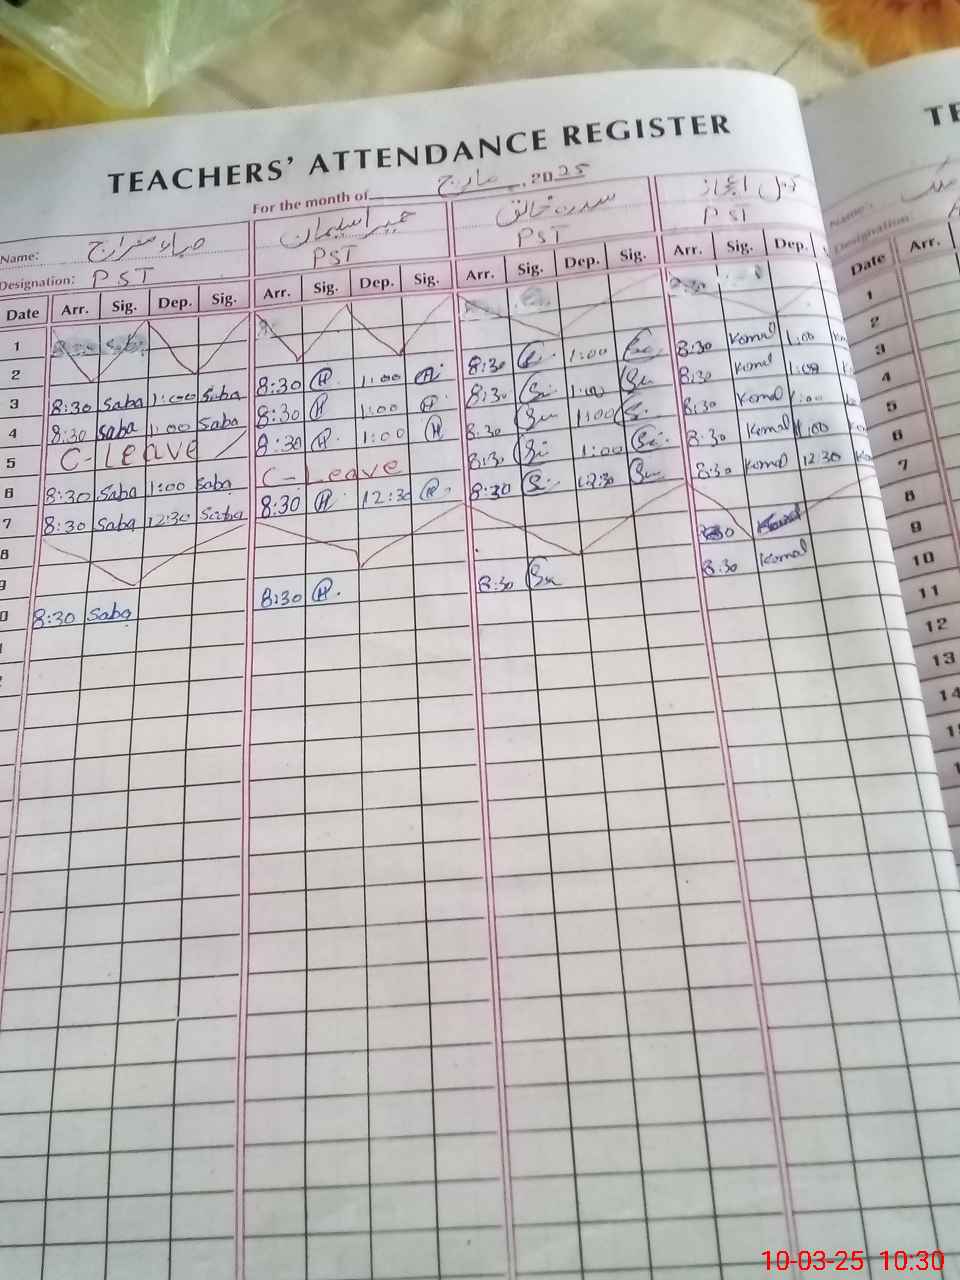 TEACHERS' ATTENDANCE REGISTER
For the month of مارچ, 2025
Name: صباء معراج حمیرا سلیمان سدرہ خالق کومل اعجاز
Designation: PST PST PST PST
Date Arr. Sig. Dep. Sig. Arr. Sig. Dep. Sig. Arr. Sig. Dep. Sig. Arr. Sig. Dep.
1
2
3 8:30 Saba 1:00 Saba 8:30 H 1:00 H 8:30 1:00 8:30 Komal 1:00
4 8:30 Saba 1:00 Saba 8:30 H 1:00 H 8:30 1:00 8:30 Komal 1:00
5 C-Leave 8:30 H 1:00 H 8:30 1:00 8:30 Komal 1:00
6 8:30 Saba 1:00 Saba C-Leave 8:30 1:00 8:30 Komal 1:00
7 8:30 Saba 12:30 Saba 8:30 H 12:30 8:30 12:30 8:30 Komal 12:30
8
9
0 8:30 Saba 8:30 H. 8:30 8:30 Komal
TE
Name:
Designation:
Date Arr.
1
2
3
4
5
6
7
8
9
10
11
12
13
14
10-03-25 10:30